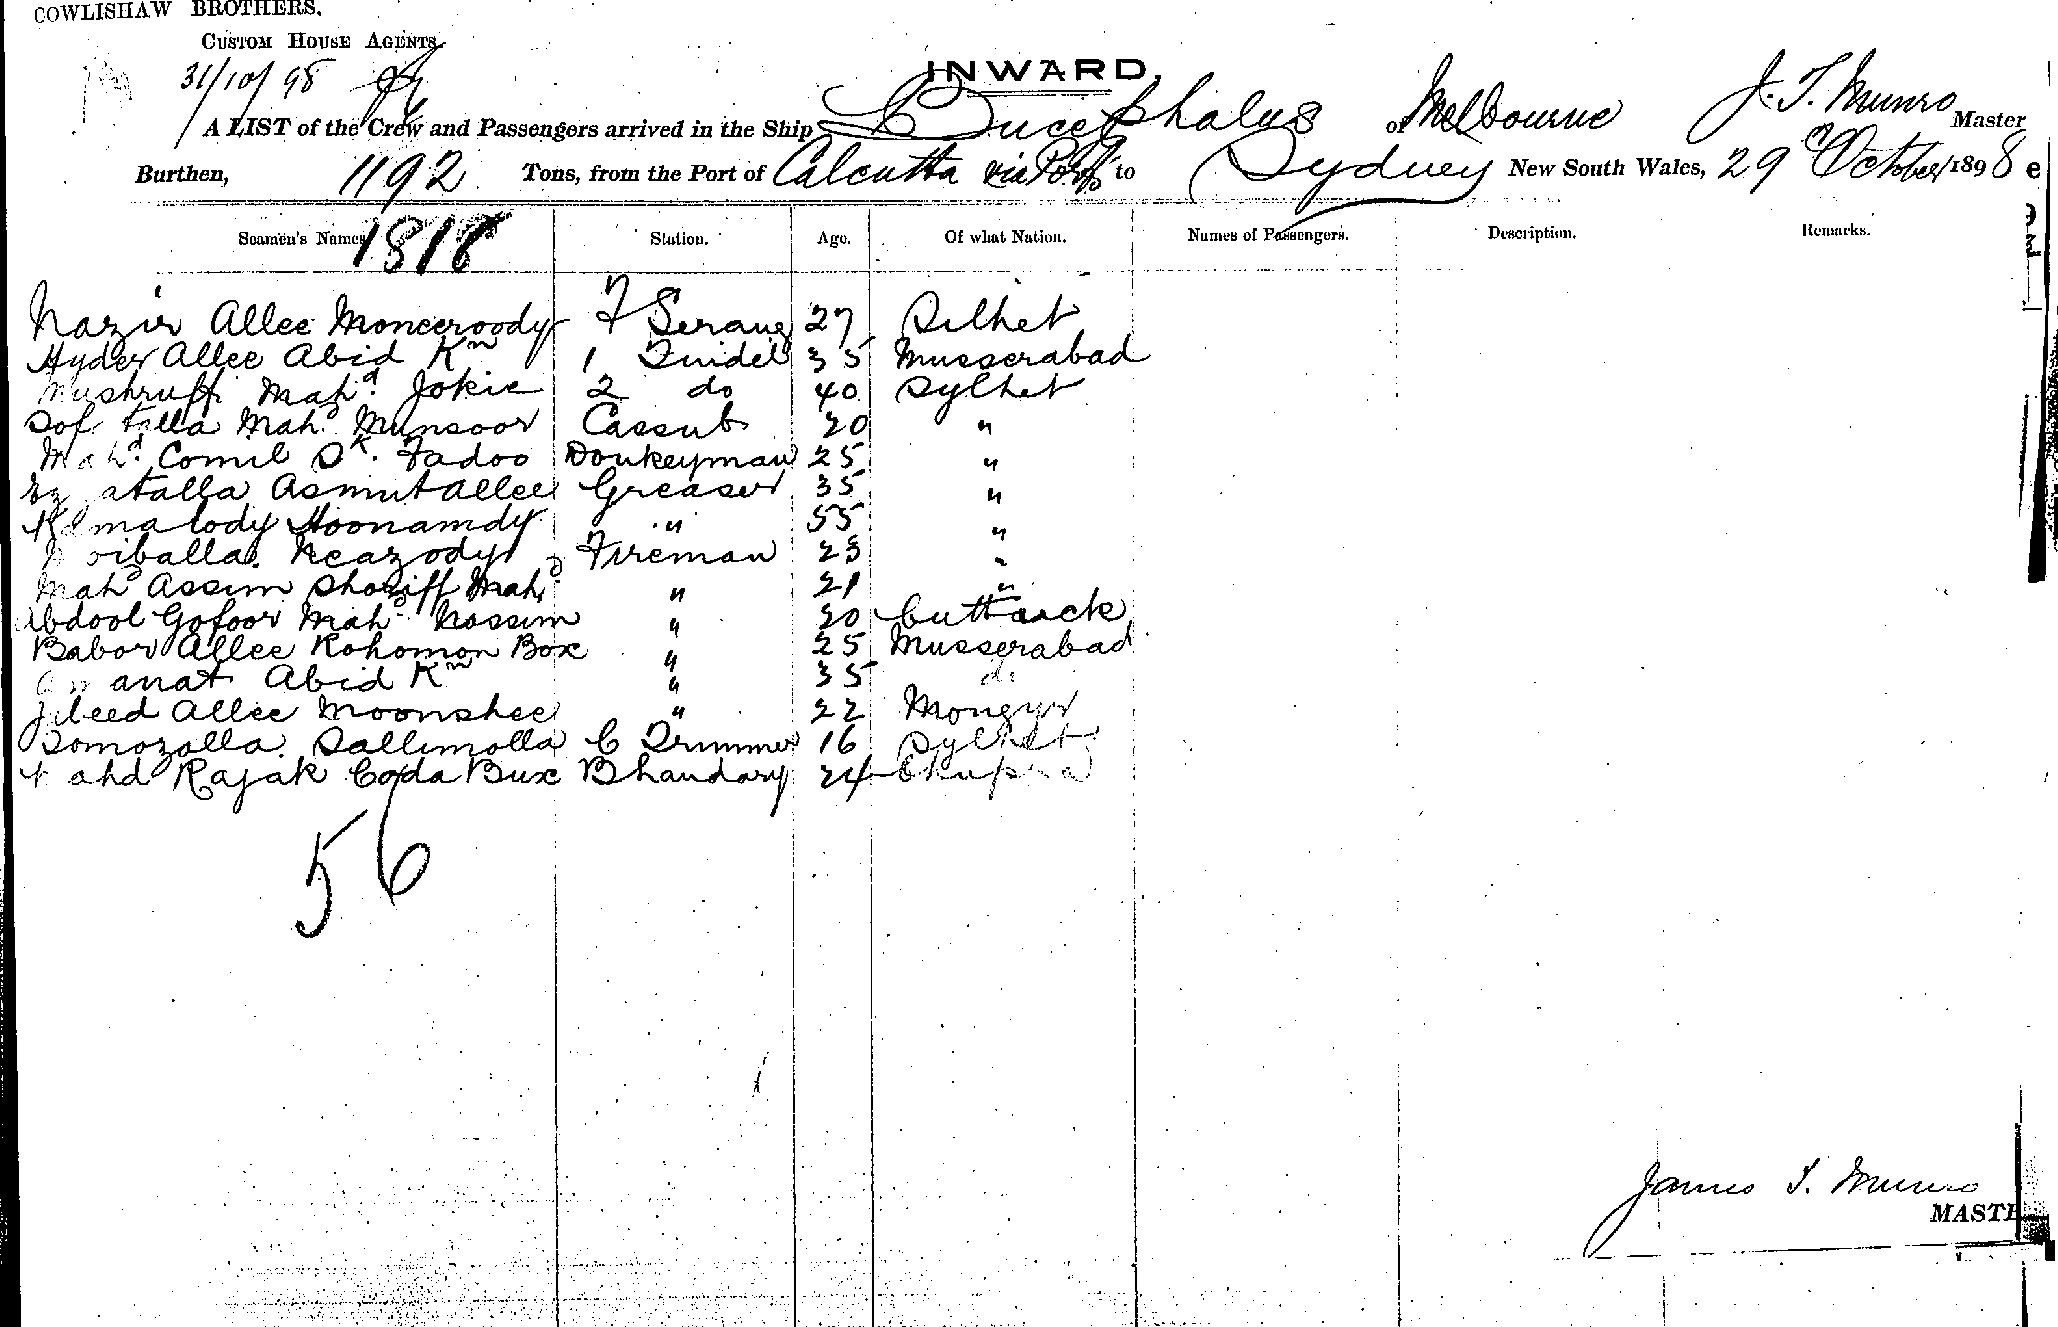 COWLISHAW BROTHERS.
CUSTOM HOUSE AGENTS.
31/10/98
INWARD.
A LIST of the Crew and Passengers arrived in the Ship Bucephalus of Melbourne J. T. Munro Master
Burthen, 1192 Tons, from the Port of Calcutta via Ports to Sydney New South Wales, 29 October 1898
Seamen's Names Station. Age. Of what Nation. Names of Passengers. Description. Remarks.
1818
Nazir Allee Monceroody F Serang 27 Silhet
Hyder Allee Abid Kn 1 Tindel 35 Musserabad
Mushruff Mahd. Jokie 2 do 40 Sylhet
talla Mahd Munsoor Cassub 20 "
Mahd. Comil Sk. Fadoo Donkeyman 25 "
atalla Asmut Allee Greaser 35 "
Hoonamdy " 55 "
Neazody Fireman 23 "
Mahd Assim Shoriff Mahd " 21 "
Abdool Gofoor Mahd Nossim " 20 Cuttack
Babor Allee Rohomon Box " 25 Musserabad
anat Abid Kn " 35 do
Allee Moonshee " 22 Mongyr
Somozolla Sallimolla C Trimmer 16 Sylhet
ahd Rajak Coda Bux Bhandary 24 Chupra
56
James T. Munro
MASTE